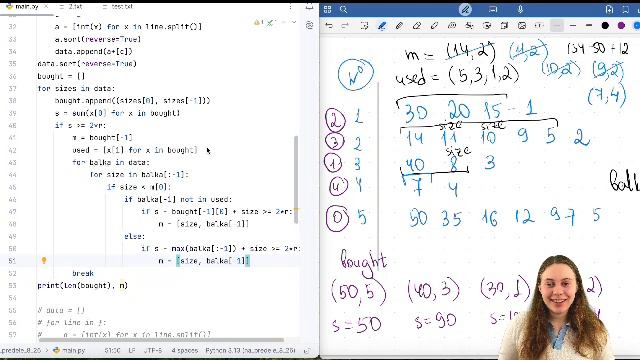 main.py
test.txt
a = [int(x) for x in line.split()]
33
a.sort(reverse=True)
34
data.append(a+[c])
35
data.sort(reverse=True)
36
bought = []
37
for sizes in data:
38
bought.append((sizes[0], sizes[-1]))
39
s = sum(x[0] for x in bought)
40
if s >= 2*r:
41
m = bought[-1]
42
used = [x[1] for x in bought]
43
for balka in data:
44
for size in balka[:-1]:
45
if size < m[0]:
46
if balka[-1] not in used:
47
if s - bought[-1][0] + size >= 2*r:
48
m = [size, balka[-1]]
49
else:
50
if s - max(balka[:-1]) + size >= 2*r:
51
m = [size, balka[-1]]
52
break
53
print(len(bought), m)
54
# data = []
# for line in f:
# a = [int(x) for x in line.split()]
na_predele_8_26 > main.py
51:50 LF UTF-8 4 spaces Python 3.13 (na_predele_8_26)
m = (14,2) (11,2) 154-30+12
(10,2) (9,2)
used = (5,3,1,2)
(7,4)
N°
2 1 30 20 15 - 1
size
3 2 14 11 10 9 5 2
size
1 3 40 8 3
4 4 7 4
0 5 50 35 16 12 9 7 5
bought
(50,5) (40,3) (30,1) 2)
s = 50 s = 90